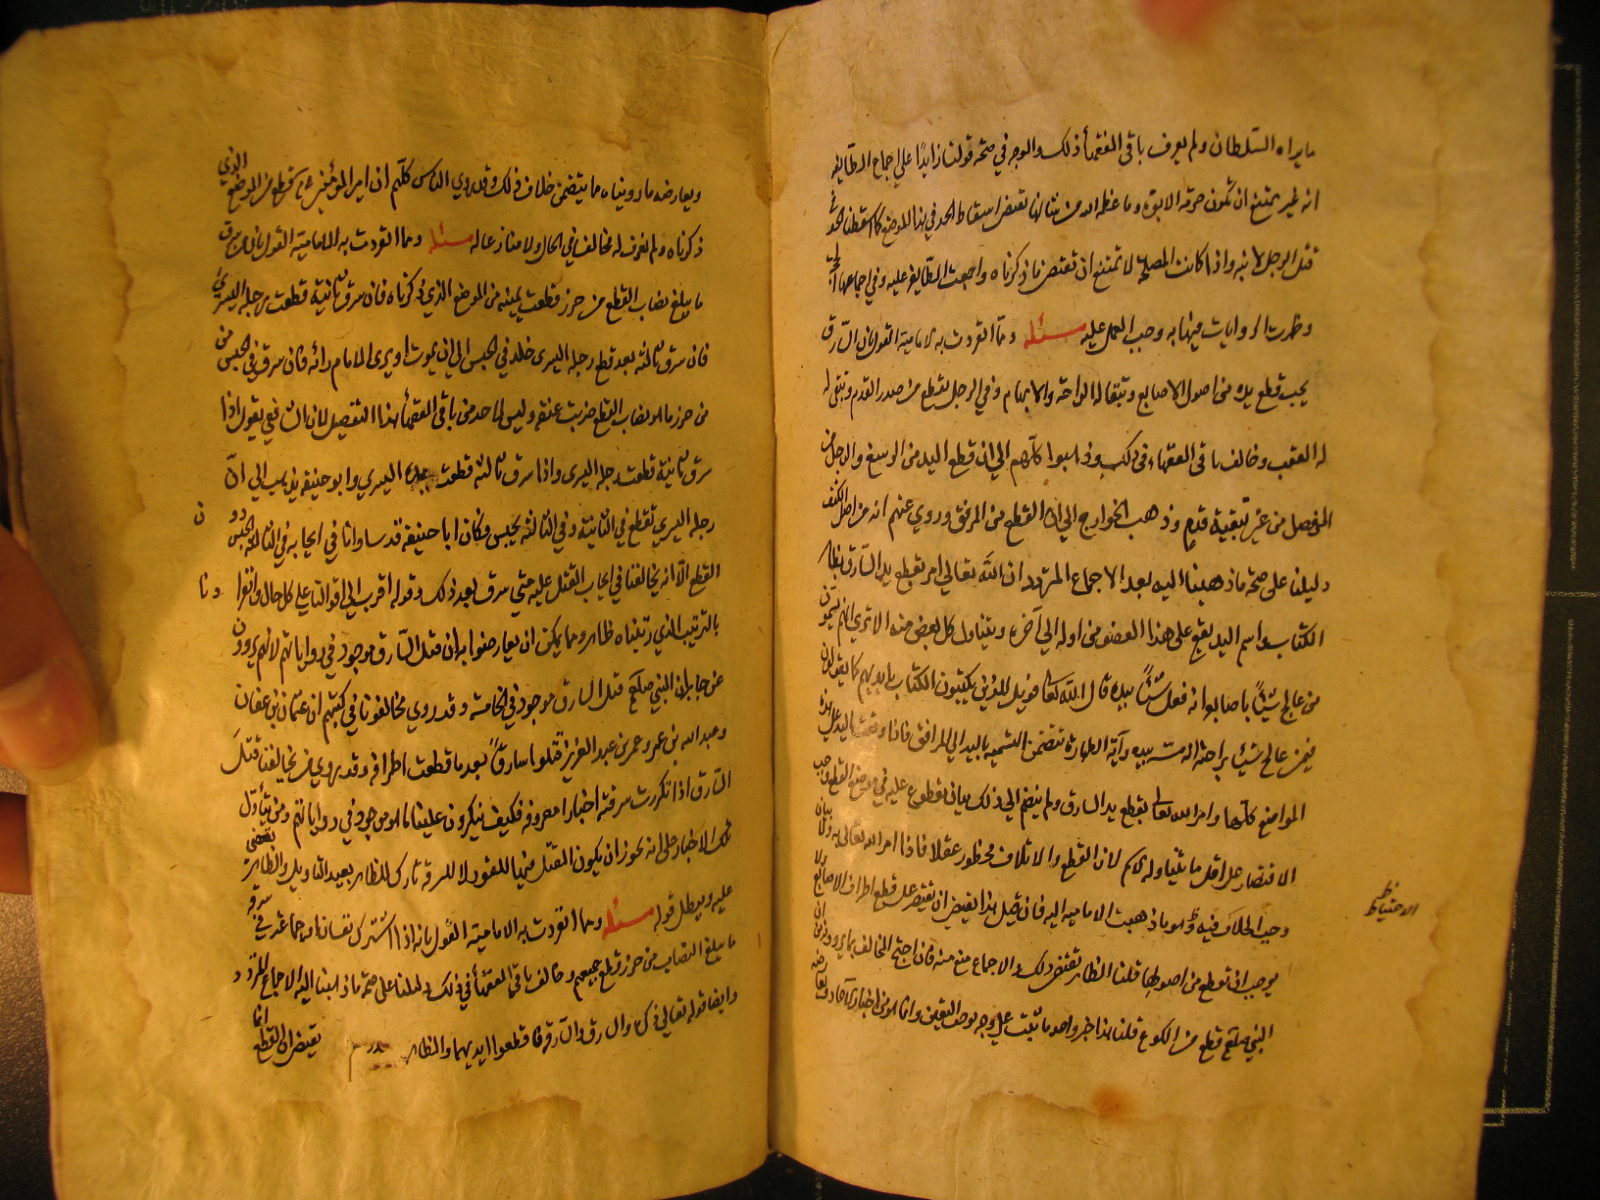 ما يراه السلطان ولم يعرف باقي الفقهاء ذلك والوجه في صحة قولنا زايدا على اجماع الطايفة
انه غير يمتنع ان تكون حرمة الابوة وما عظمه الله من شانها تقتضي اسقاط الحد في هذا الموضع كما اسقطنا الحد في
قتل الرجل لابنه واذا كانت المصلحة لا تمتنع ان تقتضي ما ذكرناه واجمعت الطايفة عليه وفي اجماعها الحجة
وظهرت الروايات فيها به وجب العمل عليه مسئلة ومما انفردت به الامامية القول بان السارق
يجب قطع يده من اصول الاصابع وتبقى له الراحة والابهام وفي الرجل يقطع من صدر القدم وتبقى له
له العقب وخالف باقي الفقهاء في ذلك وذهبوا كلهم الى ان قطع اليد من الرسغ والرجل من
المفصل من غير تبقية قدم وذهب الخوارج الى ان القطع من المرفق وروي عنهم انه من اصل الكتف
دليلنا على صحة ما ذهبنا اليه بعد الاجماع المتردد ان الله تعالى امر بقطع يد السارق بظاهر
الكتاب واسم اليد يقع على هذا العضو من اوله الى آخره ويتناول كل بعض منه الا ترى انهم يسمون
من عالج شيئا باصابعه انه فعل شيئا بيده قال الله تعالى فويل للذين يكتبون الكتاب بايديهم كما يقولون
فيمن عالج شيئا براحته انه بيده وآية الطهارة تتضمن التسمية باليد الى المرافق فاذا وقعت اليد على هذه
المواضع كلها وامر الله تعالى بقطع يد السارق ولم ينضم الى ذلك بيان مقطوع عليه في موضع القطع وجب
الاقتصار على اقل ما يتناوله الاسم لان القطع والاتلاف محظور عقلا فاذا امر الله تعالى به ولا بيان
وجب الخلاف فيه وهو ما ذهبت الامامية اليه فان قيل هذا يقتضي ان يقتصر على قطع اطراف الاصابع ولا
الاحتياط ظ
يوجب ان تقطع من اصولها قلنا الظاهر يقتضي ذلك والاجماع منع منه فان احتج المخالف بما يروونه من ان
النبي صلعم قطع من الكوع قلنا هذا خبر واحد ما ثبت على وجه يوجب اليقين وانما هو من اخبار الآحاد وتعارضه
ويعارضه ما رويناه مما يتضمن خلاف ذلك وقد روي الناس كلهم ان امير المؤمنين ع قطع من الموضع الذي
ذكرناه ولم نعرف له مخالف في الحال ولا منازعا له مسئلة ومما انفردت به الامامية القول بان من سرق
ما يبلغ نصاب القطع من حرز قطعت يمينه من الموضع الذي ذكرناه فان سرق ثانية قطعت رجله اليسرى
فان سرق ثالثة بعد قطع رجله اليسرى خلد في الحبس الى ان يموت او يرى الامام رأيه فان سرق في الحبس من
من حرز ما هو نصاب القطع ضربت عنقه وليس لاحد من باقي الفقهاء هذا التفصيل لان الشافعي يقول اذا
سرق ثانية قطعت رجله اليسرى واذا سرق ثالثة قطعت يده اليسرى وابو حنيفة يذهب الى ان
رجله اليسرى تقطع في الثانية وفي الثالثة يحبس وكان ابا حنيفة قد ساوانا في ايجابه في الثالثة الحبس دون
القطع الا انه يخالفنا في ايجاب القتل عليه متى سرق بعد ذلك وقوله اقرب الى اقوالنا على كل حال وانفرادنا
بالترتيب الذي رتبناه ظاهر ومما يمكن ان يعارضوا به ان قتل السارق موجود في رواياتهم لانهم يروون
عن جابر ان النبي صلعم قتل السارق موجود في الخامسة وقد روي مخالفونا في كتبهم ان عثمان بن عفان
وعبد الله بن عمر وعمر بن عبد العزيز قتلوا سارقا بعد ما قطعت اطرافه وقد يروي من يخالفنا قتل
السارق اذا تكررت سرقته اخبارا معروفه فكيف ينكرون علينا ما هو موجود في رواياتهم ومن تأول
تلك الاخبار على انه يجوز ان يكون القتل فيها للقود لا للسرقة تارك للظاهر بعيد التأويل والظاهر يقضي
عليه ويبطل قوله مسئلة ومما انفردت به الامامية القول بانه اذا اشترك نفسان او جماعة في سرقة
ما يبلغ النصاب من حرز قطع جميعهم وخالف باقي الفقهاء في ذلك دليلنا على صحة ما ذهبنا اليه الاجماع المتردد
وايضا قوله تعالى ذكره والسارق والسارقة فاقطعوا ايديهما والظاهر يقتضي ان القطع انما